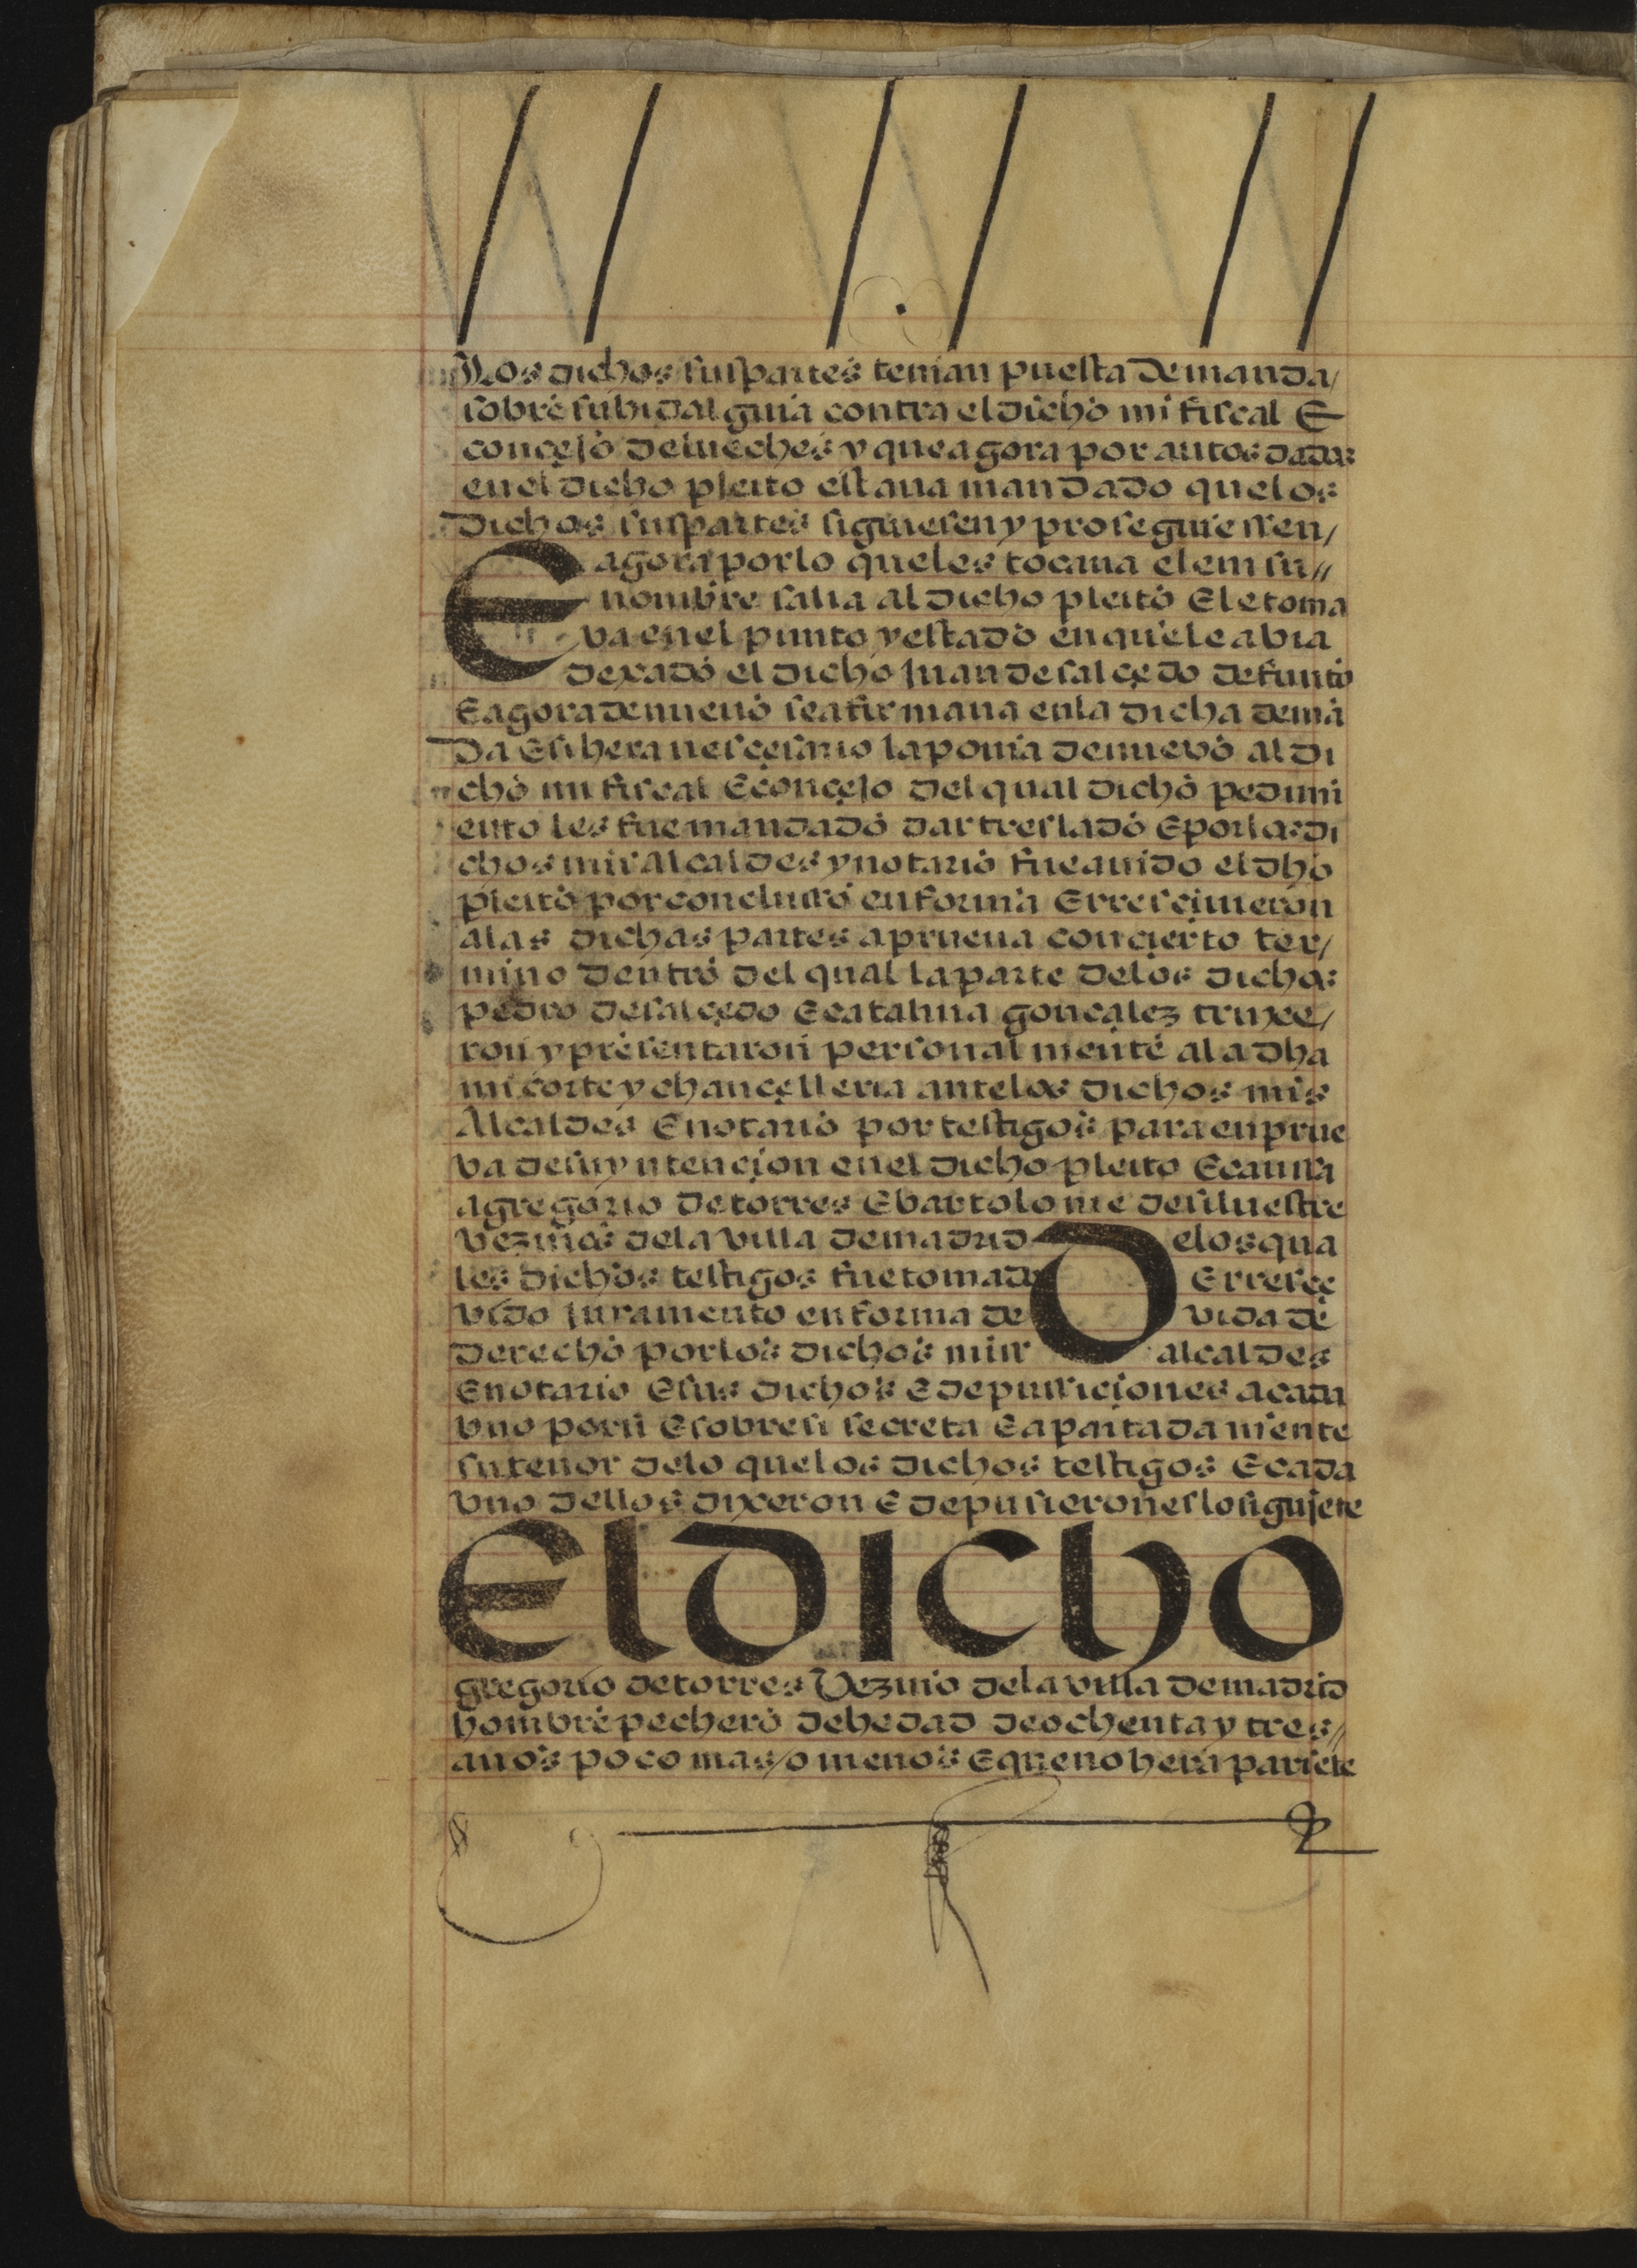 los dichos suspartes tenian puesta Demanda/
sobre suhidalguia contra eldicho mi fiscal E
conçejo deleches y queagora por autos dados
enel dicho pleito estaua mandado quelos
Dichos suspartes siguiesen y prosiguiessen/
E agora porlo queles tocaua el em su//
nombre salia al dicho pleito E le toma
va en el punto y estado en quele abia
dexado el dicho Juan de salçedo defunto
E agora denueuo seafirmaua enla dicha demã
Da E si hera nesçesario la ponia denuevo al di
cho mi fiscal E conçejo del qual dicho pedimi
ento les fue mandado dar treslado E por los di
chos mis Alcaldes y notario fue auido el dho
pleito por concluso en forma E rresçiuieron
a las dichas partes a prueua con cierto ter/
mino dentro del qual la parte delos dichos
pedro desalçedo E catalina gonçalez truxe/
ron y presentaron personalmente a la dha
mi corte y chançelleria antelos dichos mis
Alcaldes E notario por testigos para en prue
va de su yntençion en el dicho pleito E causa
a gregorio de torres E bartolome de siluestre
vezinos dela villa demadrid Delosqua
les dichos testigos fue tomado E rresçe
vido Juramento en forma de vida de
derecho por los dichos mis alcaldes
E notario E sus dichos E depussiciones a cada
vno por si E sobre si secreta E apartadamente
su tenor delo quelos dichos testigos E cada
vno dellos dixeron E depusieron es lo siguiẽte
El DICHO
gregorio detorres Vezino dela villa demadrid
hombre pechero dehedad deochenta y tres//
años poco mas/o menos E que no hera pariẽte